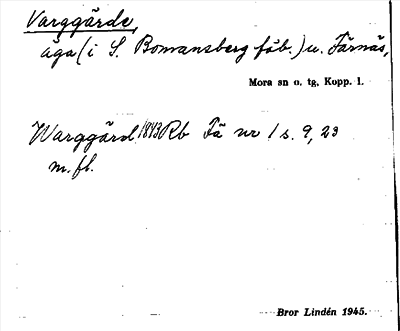 Varggärde,
äga (i S. Bomansberg fäb.) u. Färnäs,
Mora sn o. tg, Kopp. l.
Warggärd 1843 Rb Fä nr 1 s. 9, 23
m. fl.
Bror Lindén 1945.